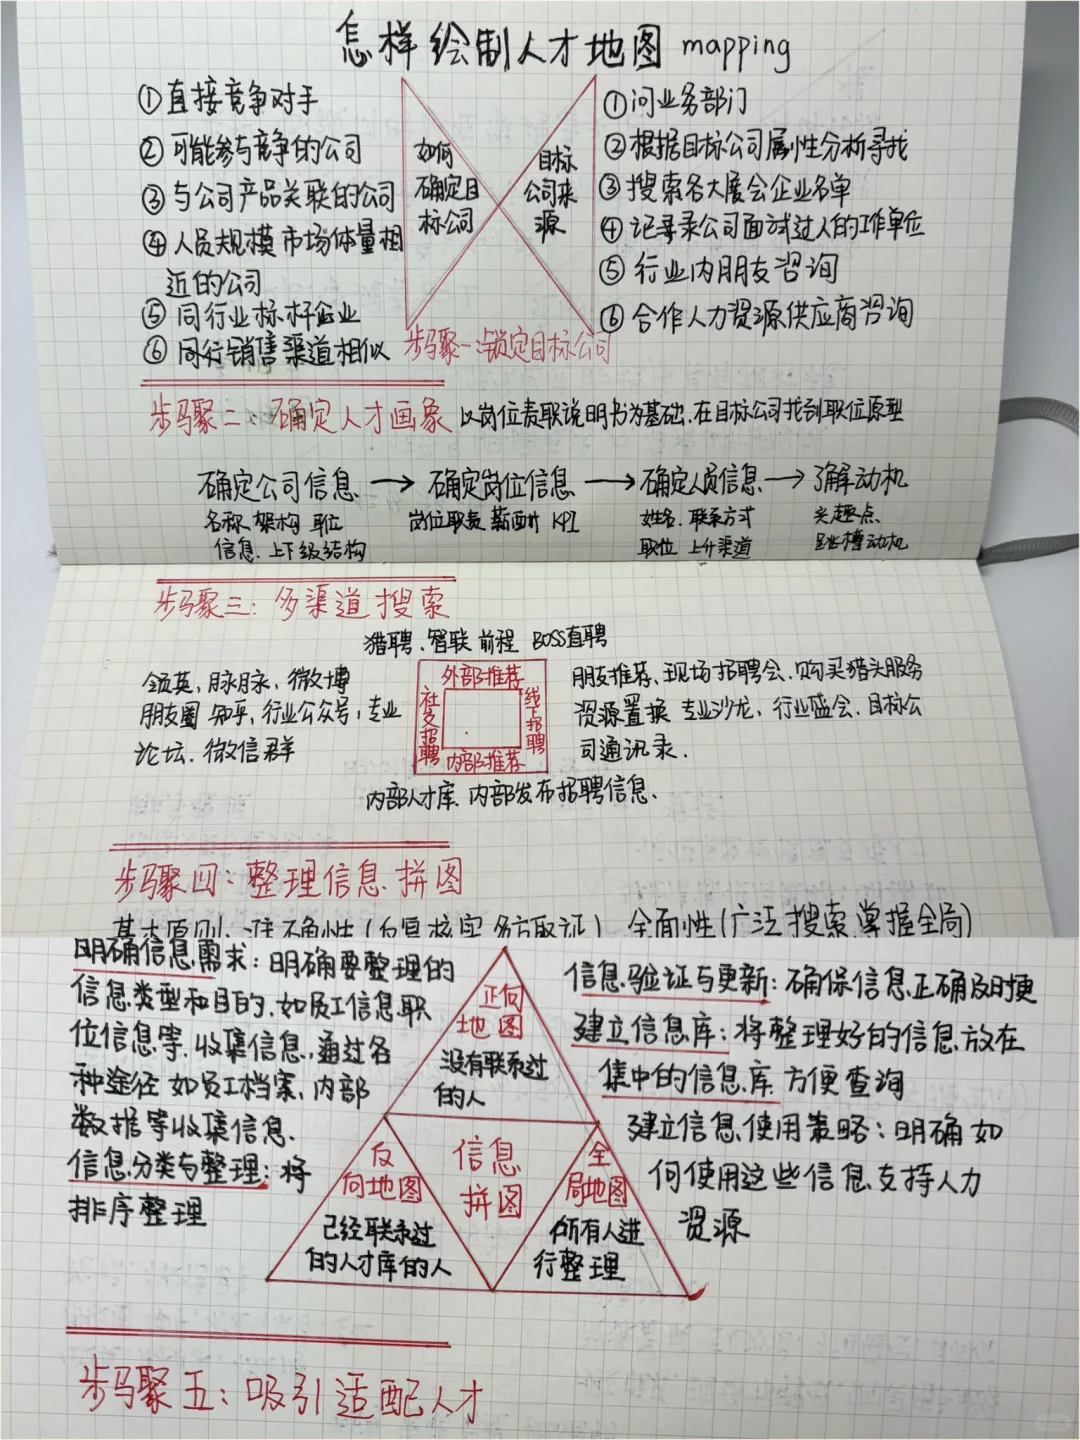 怎样绘制人才地图 mapping
①直接竞争对手
②可能参与竞争的公司
③与公司产品关联的公司
④人员规模市场体量相
近的公司
⑤同行业标杆企业
⑥同行销售渠道相似
如何
确定目
标公司
目标
公司来
源
①问业务部门
②根据目标公司属性分析寻找
③搜索各大展会企业名单
④记录录公司面试过人的工作单位
⑤行业内朋友咨询
⑥合作人力资源供应商咨询
步骤一:锁定目标公司
步骤二、确定人才画象 以岗位责职说明书为基础.在目标公司找到职位原型
确定公司信息→确定岗位信息→确定人员信息→了解动机
名称.架构 职位
信息.上下级结构
岗位职责 薪酬 KPI
姓名.联系方式
职位 上升渠道
兴趣点
跳槽动机
步骤三:多渠道搜索
猎聘.智联 前程 BOSS直聘
领英,脉脉,微博
朋友圈 知乎,行业公众号,专业
论坛.微信群
外部推荐
社交招聘
线下招聘
内部推荐
朋友推荐、现场招聘会.购买猎头服务
资源置换 专业沙龙,行业盛会.目标公
司通讯录.
内部人才库.内部发布招聘信息.
步骤四:整理信息拼图
基本原则:准确性(反复核实多方取证) 全面性(广泛搜索掌握全局)
明确信息需求:明确要整理的
信息类型和目的,如员工信息职
位信息等.收集信息,通过各
种途径 如员工档案,内部
数据等收集信息.
信息分类与整理:将
排序整理
正向
地图
没有联系过
的人
反
向地图
已经联系过
的人才库的人
信息
拼图
全
局地图
所有人进
行整理
信息验证与更新:确保信息正确及时更
建立信息库:将整理好的信息放在
集中的信息库 方便查询
建立信息使用策略:明确如
何使用这些信息支持人力
资源
步骤五:吸引适配人才